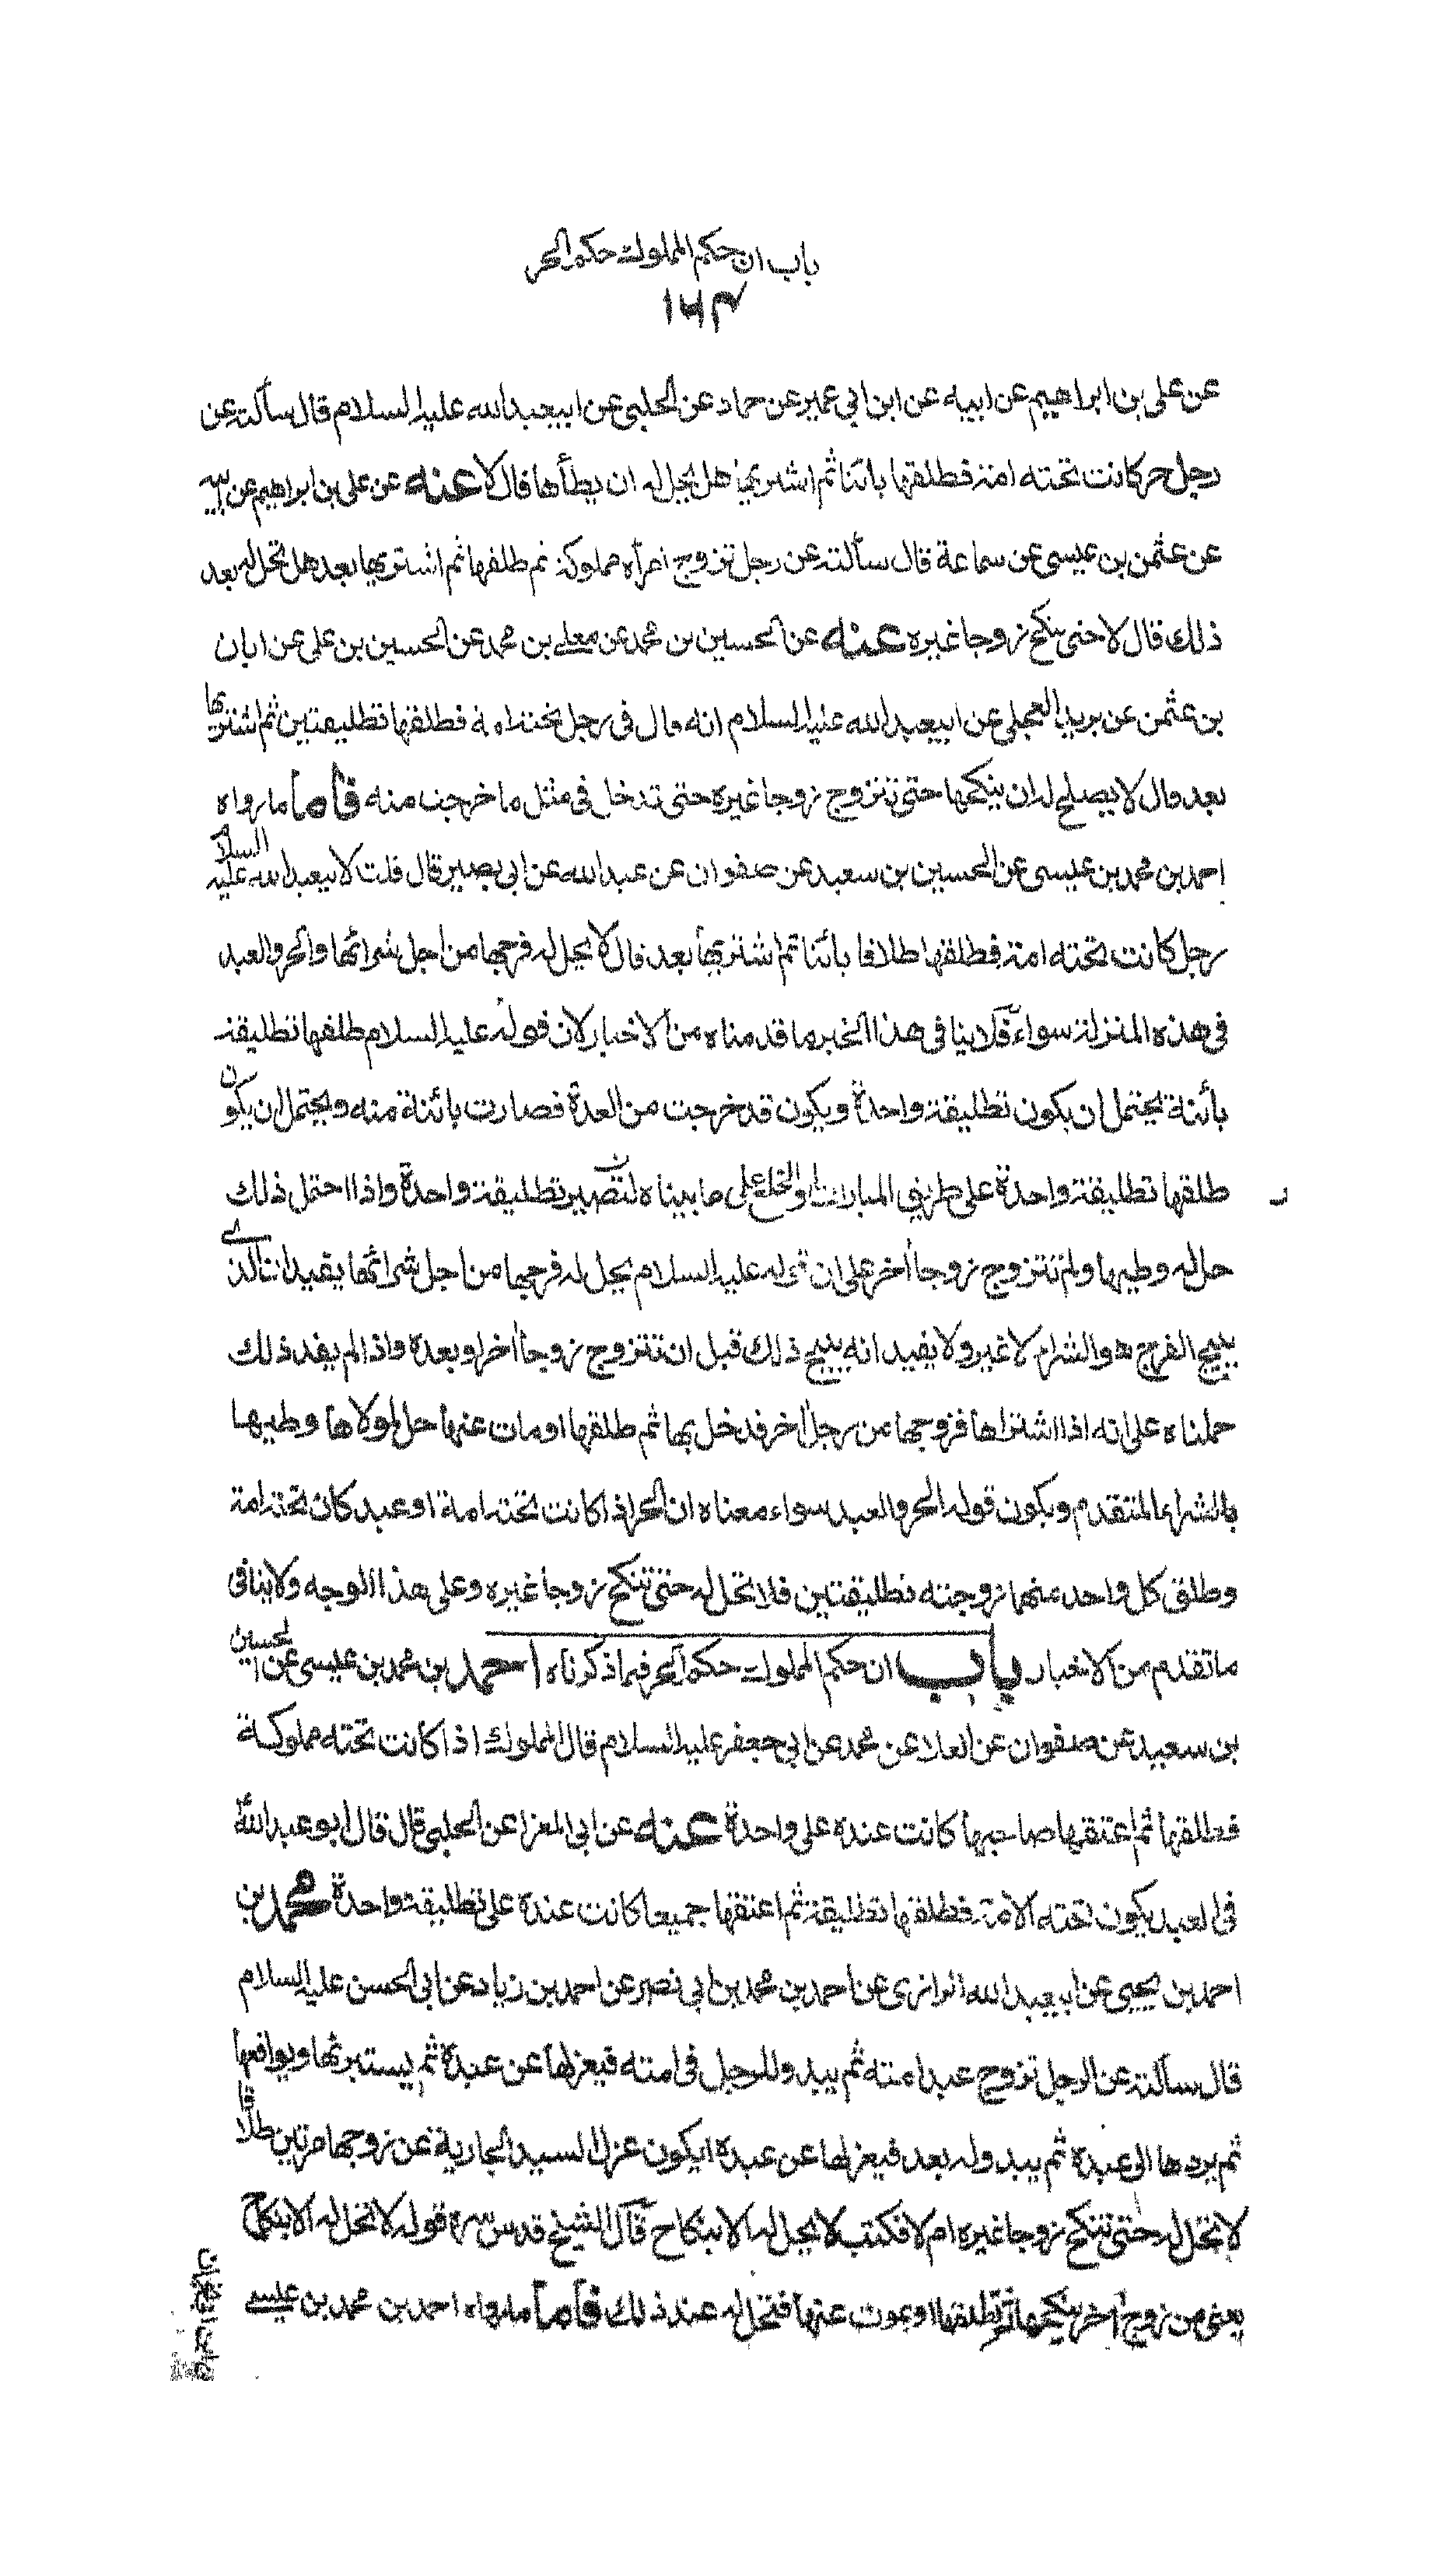 باب ان حكم المملوك حكم الحر
عن علي بن ابراهيم عن ابيه عن ابن ابي عمير عن حماد عن الحلبي عن ابيعبدالله عليه السلام قال سألته عن
رجل حر كانت تحته امة فطلقها بائنا ثم اشتريها هل يحل له ان يطأها قال لا عنه عن علي بن ابراهيم عن ابيه
عن عثمن بن عيسى عن سماعة قال سألته عن رجل تزوج امرأه مملوكة ثم طلقها ثم اشتريها بعد هل تحل له بعد
ذلك قال لا حتى ينكح زوجا غيره عنه عن الحسين بن محمد عن معلى بن محمد عن الحسين بن علي عن ابان
بن عثمن عن بريد العجلي عن ابيعبدالله عليه السلام انه قال في رجل تحته امة فطلقها تطليقتين ثم اشتريها
بعد قال لا يصلح له ان ينكحها حتى تتزوج زوجا غيره حتى تدخل في مثل ما خرجت منه فأما ما رواه
احمد بن محمد بن عيسى عن الحسين بن سعيد عن صفوان عن عبدالله عن ابي بصير قال قلت لابيعبدالله عليه السلا
رجل كانت تحته امة فطلقها طلاقا بائنا ثم اشتريها بعد قال لا يحل له فرجها من اجل شرائها والحر والعبد
في هذه المنزلة سواء فلا ينافي هذا الخبر ما قدمناه من الاخبار لان قوله عليه السلام طلقها تطليقة
بائنة يحتمل ان يكون تطليقة واحدة ويكون قد خرجت من العدة فصارت بائنة منه ويحتمل ان يكون
طلقها تطليقة واحدة على طريق المبارات او الخلع على ما بيناه لتصير تطليقة واحدة واذا احتمل ذلك
حل له وطيها ولم تتزوج زوجا آخر على ان قوله عليه السلام يحل له فرجها من اجل شرائها يفيد ان الذي
يبيح الفرج هو الشراء لا غير ولا يفيد انه يبيح ذلك قبل ان تتزوج زوجا آخر او بعده واذا لم يفد ذلك
حملناه على انه اذا اشتراها فزوجها من رجل آخر فدخل بها ثم طلقها او مات عنها حل لمولاها وطيها
بالشراء المتقدم ويكون قوله الحر والعبد سواء معناه ان الحر اذا كانت تحته امة او عبد كان تحته امة
وطلق كل واحد منهما زوجته تطليقتين فلا تحل له حتى تنكح زوجا غيره وعلى هذا الوجه ولا ينافي
ما تقدم من الاخبار باب ان حكم المملوك حكم الحر فيما ذكرناه احمد بن محمد بن عيسى عن الحسين
بن سعيد عن صفوان عن العلا عن محمد عن ابي جعفر عليه السلام قال المملوك اذا كانت تحته مملوكة
فطلقها ثم اعتقها صاحبها كانت عنده على واحدة عنه عن ابي المعزا عن الحلبي قال قال ابو عبدالله
في العبد يكون تحته الامة فطلقها تطليقة ثم اعتقها جميعا كانت عنده على تطليقة واحدة محمد بن
احمد بن يحيى عن ابيعبدالله الرازي عن احمد بن محمد بن ابي نصر عن احمد بن زياد عن ابي الحسن عليه السلام
قال سألته عن الرجل تزوج عبده امته ثم يبدو للرجل في امته فيعزلها عن عبده ثم يستبرئها ويواقعها
ثم يردها الى عبده ثم يبدو له بعد فيعزلها عن عبده ايكون عزل السيد الجارية عن زوجها مرتين طلاقا
لا تحل له حتى تنكح زوجا غيره ام لا فكتب لا يحل له الا بنكاح قال الشيخ قدس سره قوله لا تحل له الا بنكاح
يعني من زوج آخر ينكحها ثم يطلقها او يموت عنها فتحل له عند ذلك فأما ما رواه احمد بن محمد بن عيسى